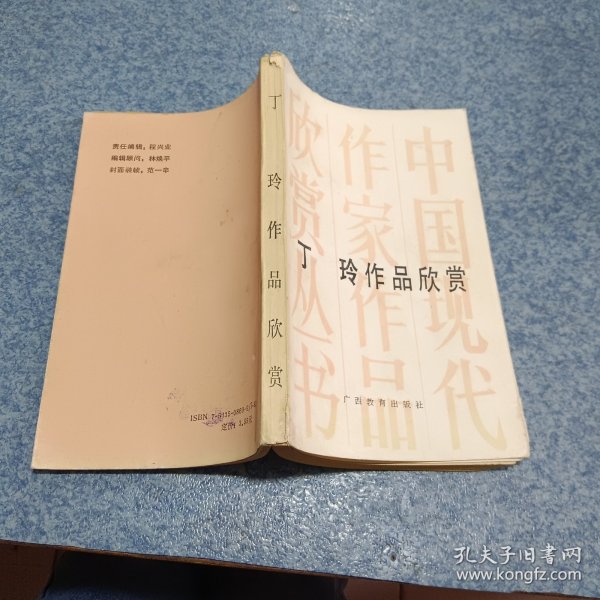 中国现代
作家作品
欣赏丛书
丁 玲作品欣赏
广西教育出版社
丁 玲 作 品 欣 赏
责任编辑：程兴业
编辑顾问：林焕平
封面装帧：范一辛
ISBN
定价：
孔夫子旧书网
www.kongfz.com